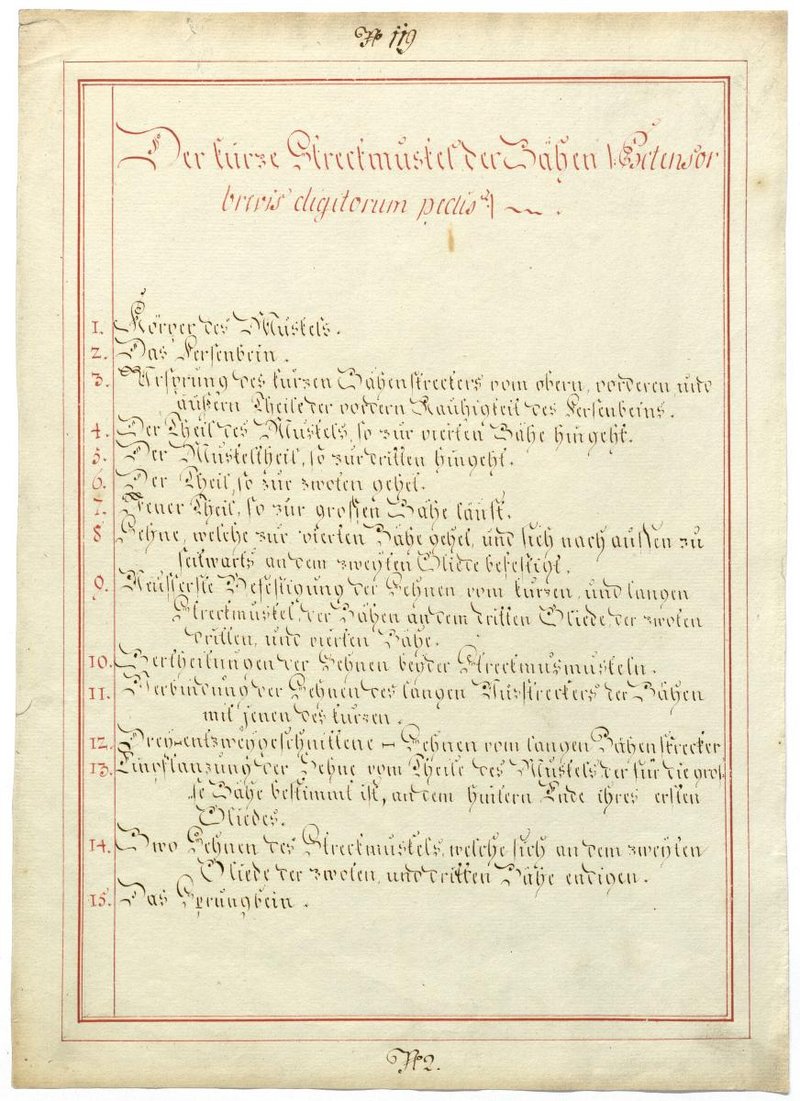 No 119
Der kurze Streckmuskel der Zähen |: Extensor
brevis digitorum pedis :|
1. Körper des Muskels.
2. Das Fersenbein.
3. Ursprung des kurzen Zähenstreckers vom obern, vorderen und
äußern Theile der vordern Rauhigkeit des Fersenbeins.
4. Der Theil des Muskels, so zur vierten Zähe hingeht.
5. Der Muskeltheil, so zur dritten hingeht.
6. Der Theil, so zur zwoten gehet.
7. Jener Theil, so zur großen Zähe läuft.
8 Sehne, welche zur vierten Zähe gehet, und sich nach aussen zu
seitwarts an dem zweyten Gliede befestigt.
9. Aeusserste Befestigung der Sehnen vom kurzen, und langen
Streckmuskel, der Zähen an dem dritten Gliede der zwoten
dritten, und vierten Zähe.
10. Zertheilungen der Sehnen beyder Streckmusmuskeln.
11. Verbindung der Sehnen des langen Ausstreckers der Zähen
mit jenen des kurzen.
12. Drey-entzweygeschnittene - Sehnen vom langen Zähenstrecker
13. Einpflanzung der Sehne vom Theile des Muskels der für die gros
se Zähe bestimmt ist, an dem hintern Ende ihres ersten
Gliedes.
14. Zwo Sehnen des Streckmuskels, welche sich an dem zweyten
Gliede der zwoten, und dritten Zähe endigen.
15. Das Sprungbein.
No 2.